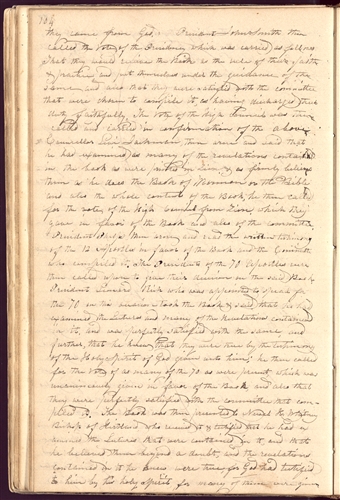 104
they came from God. President John Smith then
called the vote of the Presidency which was carried as follows:
That they would receive the Book as the rule of their faith
& practice, and put themselves under the guidance of the
same and also that they were satisfied with the committee
that were chosen to compile it, as having discharged their
duty faithfully. The vote of the High Council was then
called and carried in confirmation of the above:
Councellor Levi Jackman then arose and said that
he has examined as many of the revelations contained
in the book as were printed in Zion, & as firmly believes
them as he does the Book of Mormon or the Bible
and also the whole contents of the Book, he then called
for the vote of the High Council from Zion, which they
gave in favor of the Book and also of the committee,
President Phelps then arose and read the written testimony
of the 12 Apostles in favor of the Book and the Committee
who compiled it. The Presidents of the 70 Apostles were
then called upon to give their decision on the said Book
President Leonard Rich who was appointed to speak for
the 70 on his occasion took the Book & said that he had
examined the Lectures and many of the Revelations contained
in it, and was perfectly satisfied with the same, and
further, that he knew that they were true by the testimony
of the Holy Spirit of God given unto him; he then called
for the vote of as many of the 70 as were present, which was
unanimously given in favor of the Book and also that
they were perfectly satisfied with the committee that com-
piled it. The Book was then presented to Newel K. Whitney
Bishop of Kirtland who viewed it & testified that he had ex-
amined the Lectures that were contained in it, and that
he believed them beyond a doubt, and the revelations
contained in it he knows were true, for God had testified
to him by his holy Spirit for many of them were given